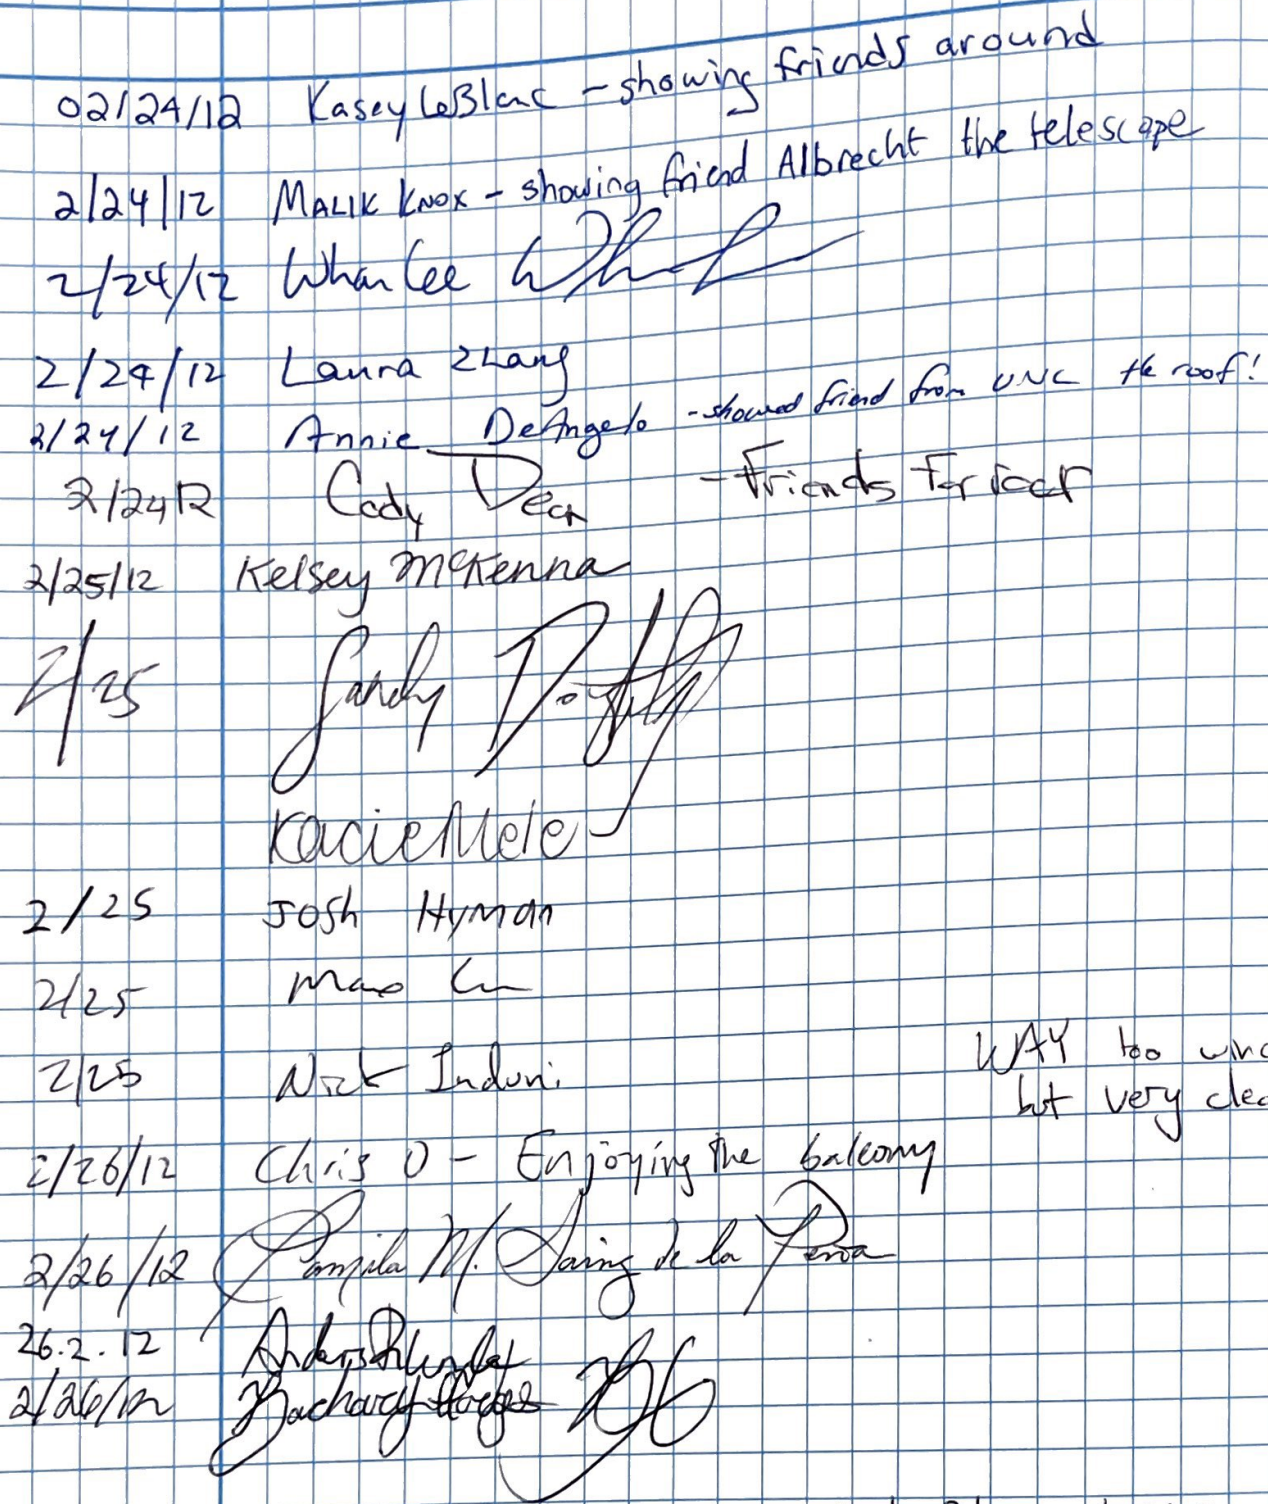 02/24/12 Kasey LeBlanc - showing friends around
2/24/12 MALIK KNOX - showing friend Albrecht the telescope
2/24/12 Whan Lee
2/24/12 Laura Zhang
2/24/12 Annie DeAngelo - showed friend from UNC the roof!
2/24/12 Cody Dean - Friends For
2/25/12 Kelsey McKenna
2/25 Sandy
Kacie Mele
2/25 Josh Hyman
2/25 Max
2/25 Nick WAY too
but very
2/26/12 Chris O - Enjoying the balcony
2/26/12 Camila M. de la
26.2.12 Anders
2/26/12 Zachary